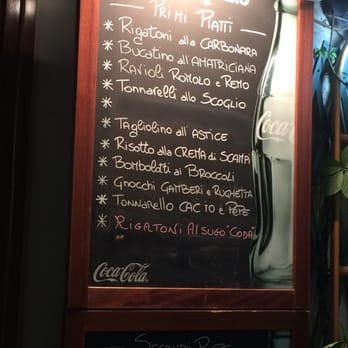 PRIMI PIATTI
* RIGATONI alla CARBONARA
* BUCATINO all'AMATRICIANA
* RAVIOLI ROMOLO e REMO
* TONNARELLI allo SCOGLIO
*
* TAGLIOLINO all'ASTICE
* RISOTTO alla CREMA di SCAMPI
* BOMBOLOTTI ai BROCCOLI
* GNOCCHI GAMBERI e RUGHETTA
* TONNARELLO CACIO e PEPE
* RIGATONI AL SUGO "CODA"
Coca-Cola
Coca-Cola